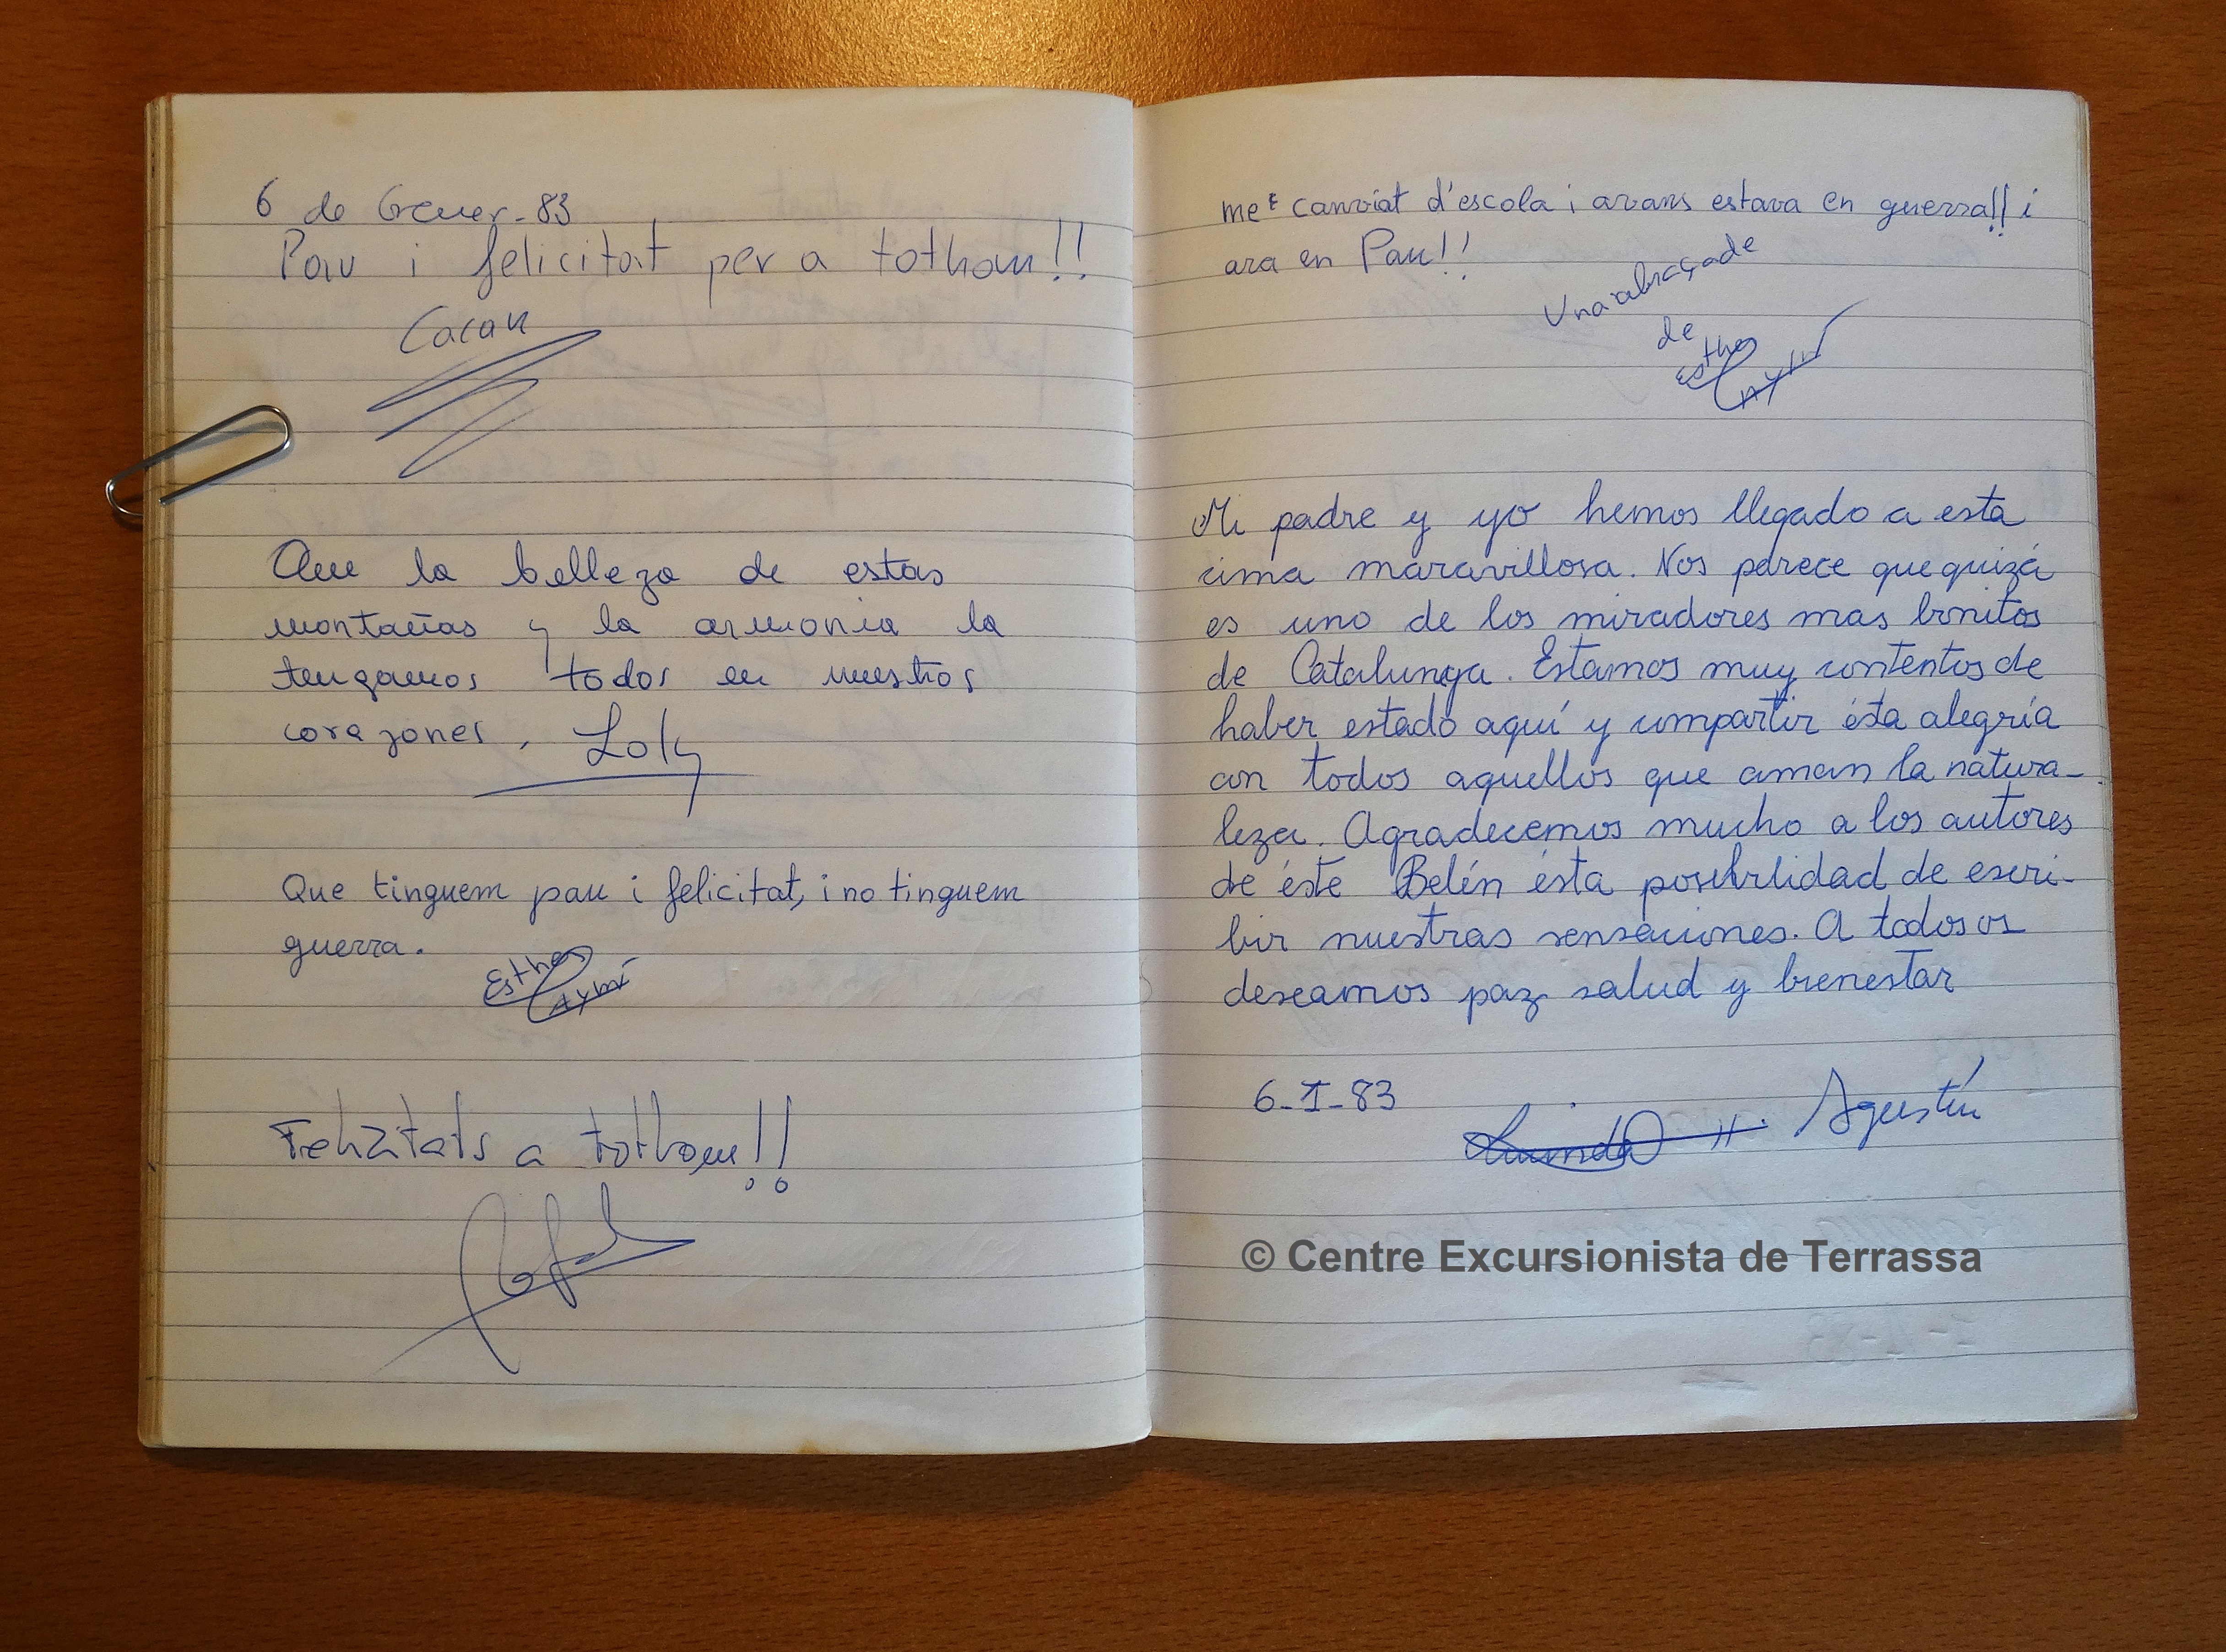 6 de Gener - 83
Pau i felicitat per a tothom!!
Cacau
Que la belleza de estas
montañas y la armonia la
tengamos todos en nuestros
corazones, Loly
Que tinguem pau i felicitat, i no tinguem
guerra.
Esther
Aymí
Felicitats a tothom!!
me e canviat d'escola i avans estava en guerra!! i
ara en Pau!!
Una abraçade
de
Esther
Mi padre y yo hemos llegado a esta
cima maravillosa. Nos parece que quizá
es uno de los miradores mas bonitos
de Catalunya. Estamos muy contentos de
haber estado aquí y compartir ésta alegría
con todos aquellos que aman la natura-
leza. Agradecemos mucho a los autores
de éste Belén ésta posibilidad de escri-
bir nuestras sensaciones. A todos os
deseamos paz salud y bienestar
6-I-83
Agustín
© Centre Excursionista de Terrassa